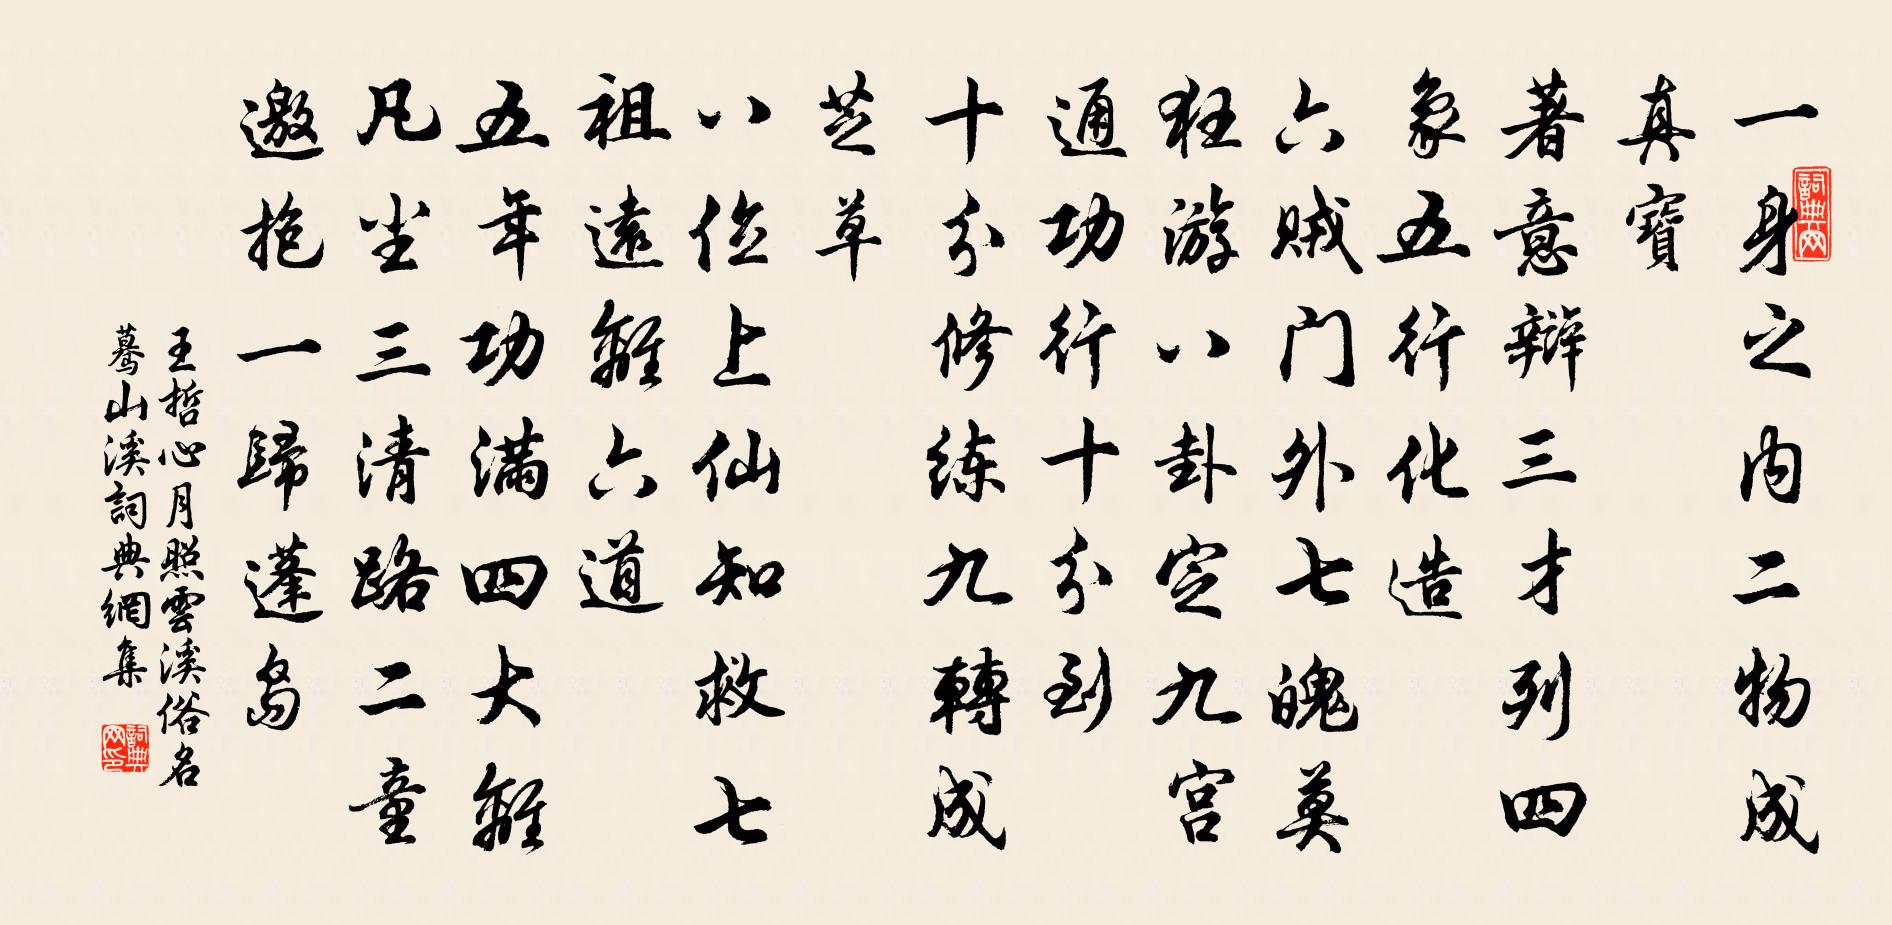 一身之內二物成
真寶
著意辯三才列四
象五行化造
六賊门外七魄莫
狂游八卦定九宫
通功行十分到
十分修练九轉成
芝草
八位上仙知救七
祖遠離六道
五年功满四大離
凡尘三清路二童
邀抱一歸蓬島
王哲心月照雲溪俗名
驀山溪詞典網集
詞典网
詞典网印